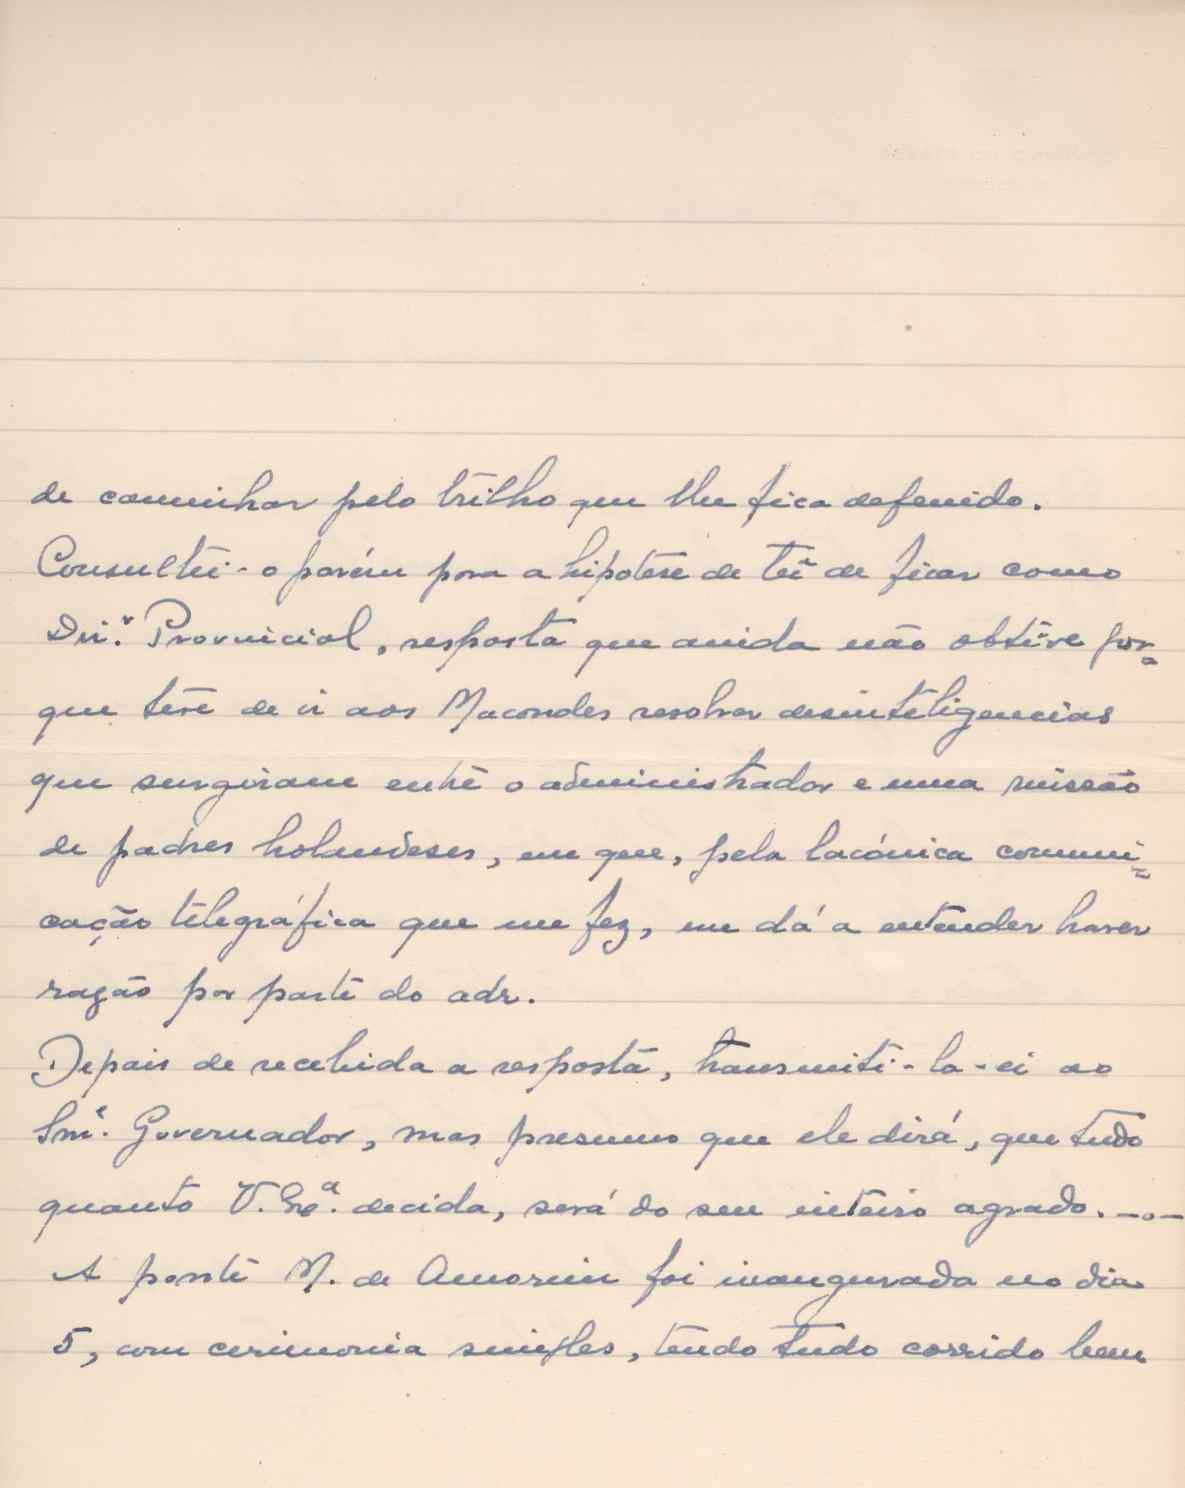 de caminhar pelo trilho que lhe fica defenido.
Consultei-o porém para a hipótese de ter de ficar como
Dir.r Provincial, resposta que ainda não obtive por=
que teve de ir aos Macondes resolver desinteligencias
que surgiram entre o administrador e uma missão
de padres holandeses, em que, pela lacónica comuni=
cação telegráfica que me fez, me dá a entender haver
razão por parte do adr.
Depois de recebida a resposta, transmiti-la-ei ao
Snr. Governador, mas presumo que ele dirá, que tudo
quanto V. Exª. decida, será do seu inteiro agrado. —o—
A ponte M. de Amorim foi inaugurada no dia
5, com cerimonia simples, tendo tudo corrido bem